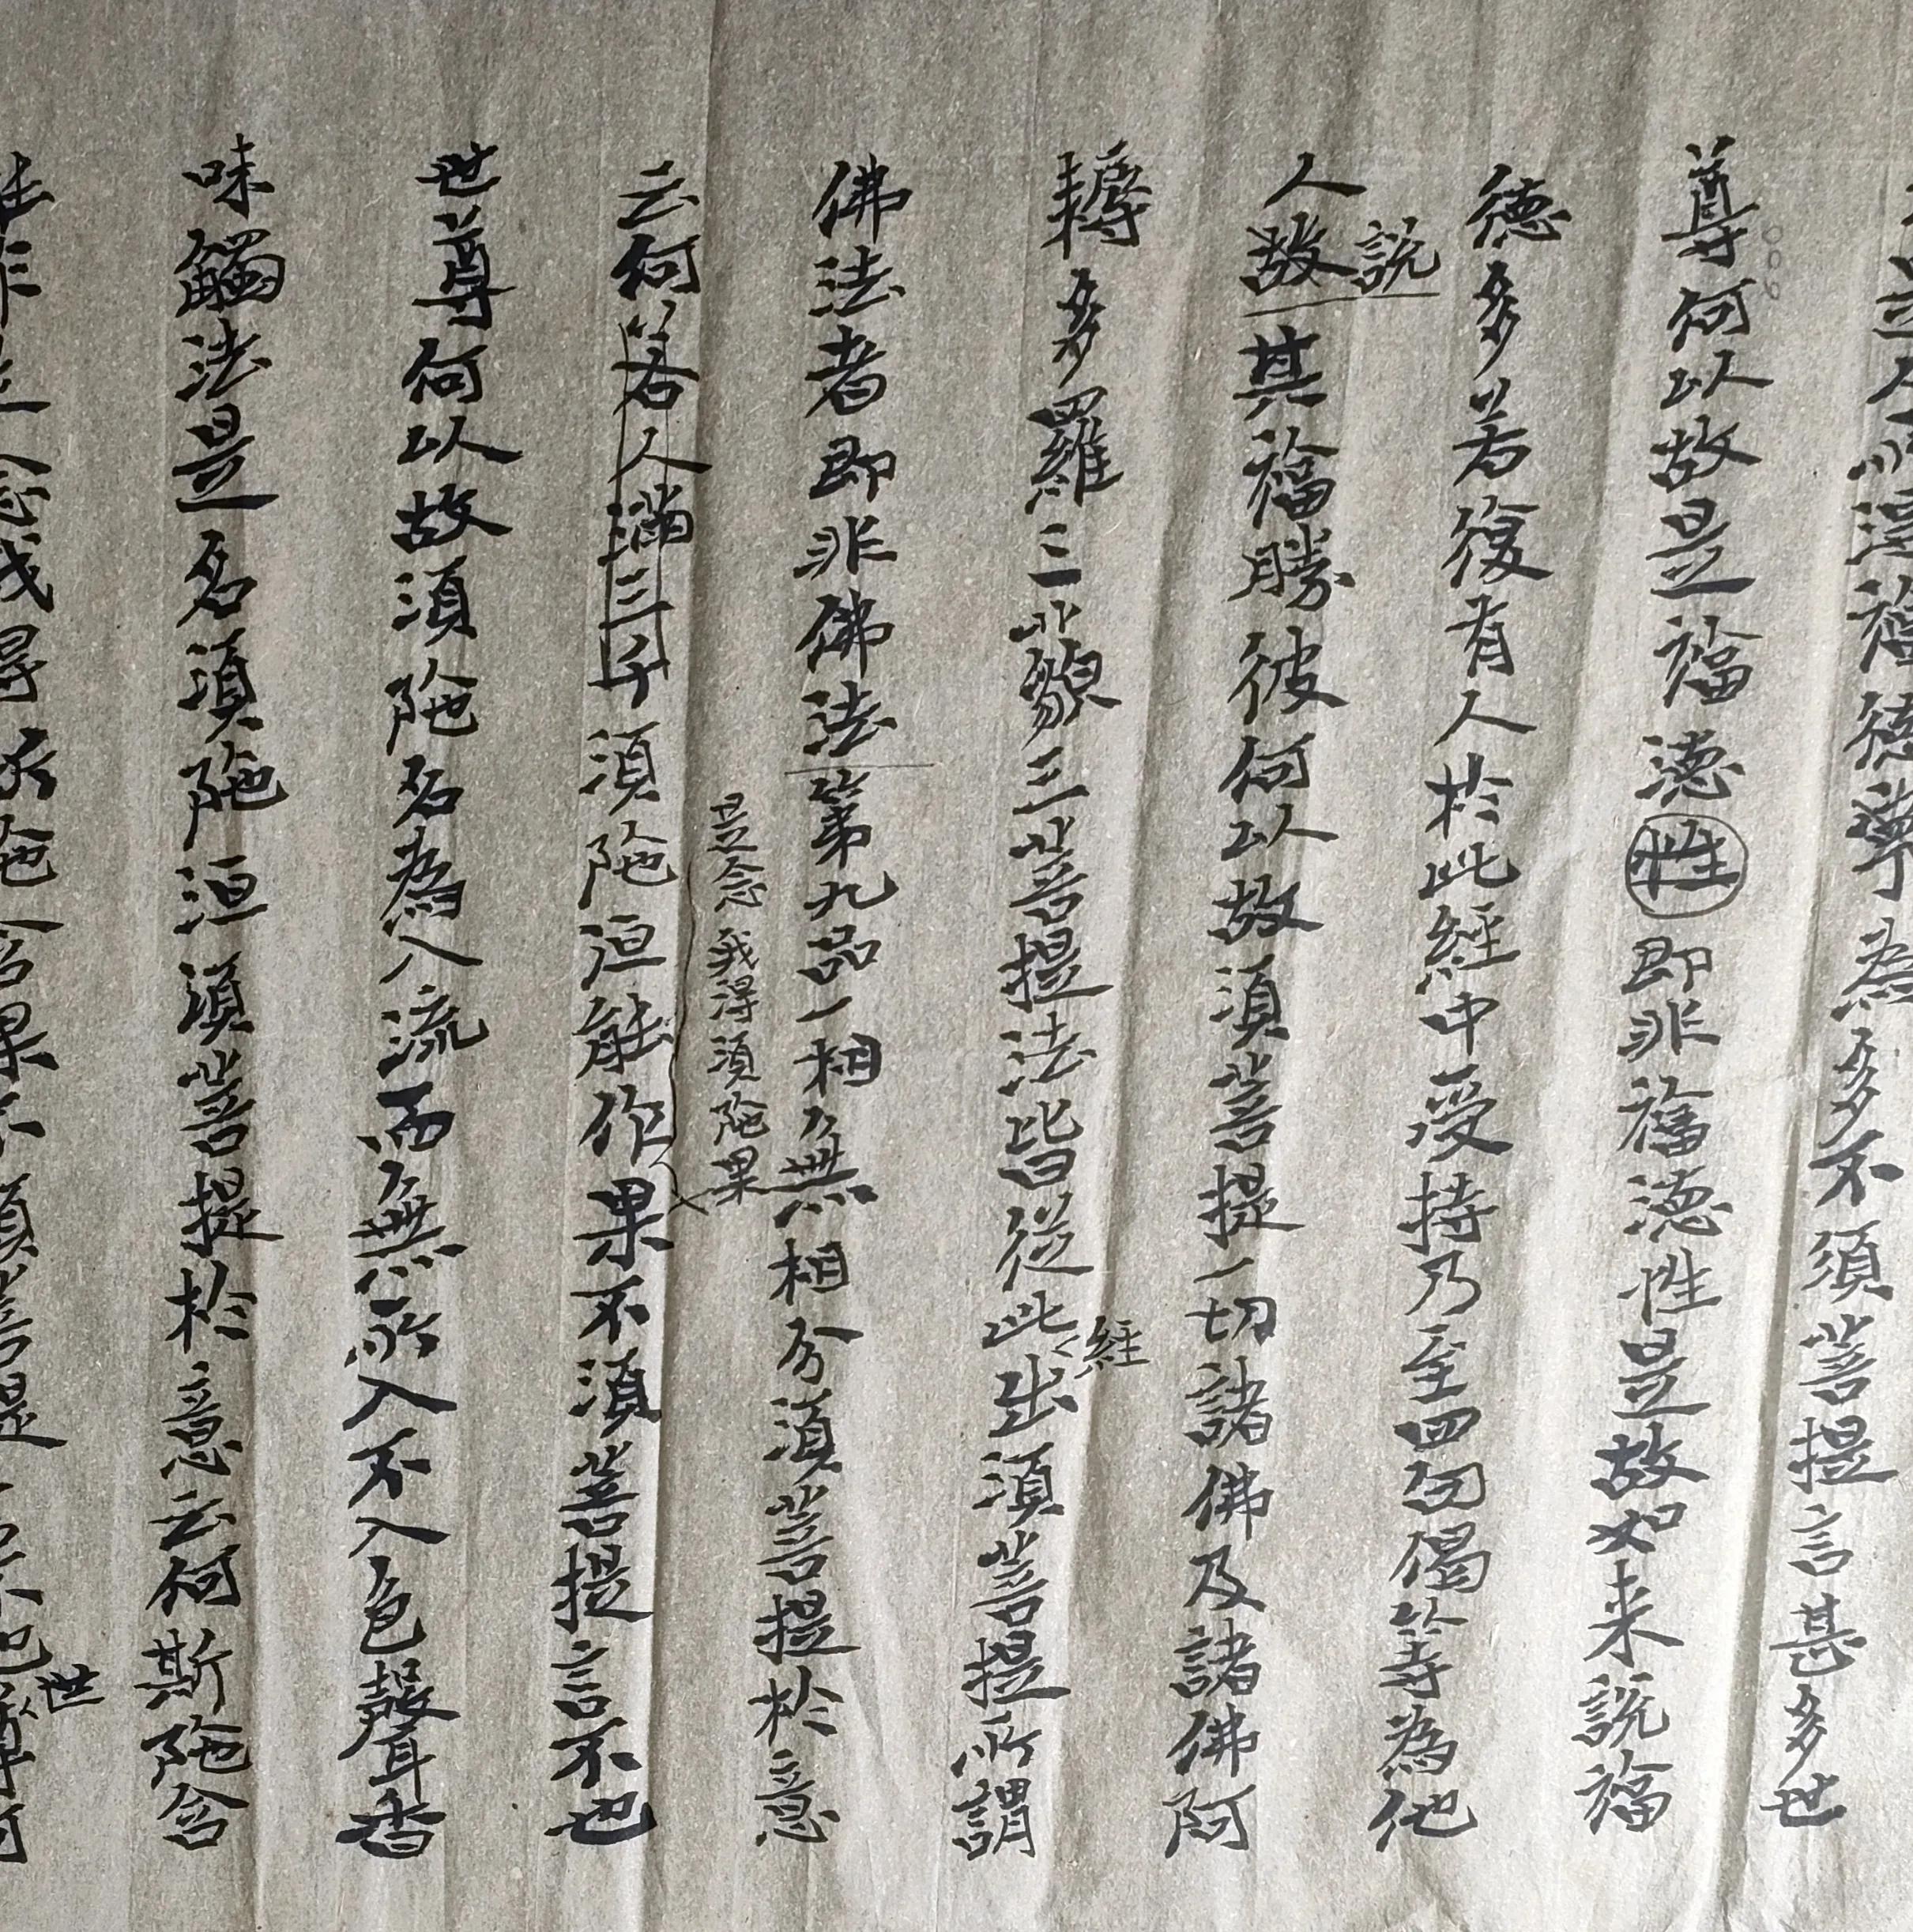 是人所得福德寧為多不須菩提言甚多世
尊何以故是福德性即非福德性是故如来説福
德多若復有人於此經中受持乃至四句偈等為他
人故其福勝彼何以故須菩提一切諸佛及諸佛阿
説
耨多羅三藐三菩提法皆從此出須菩提所謂
經
佛法者即非佛法第九品一相無相分須菩提於意
是念我得須陁果
云何若人滿三千須陁洹能作果不須菩提言不也
世尊何以故須陁名為入流而無所入不入色聲香
味觸法是名須陁洹須菩提於意云何斯陁含
世